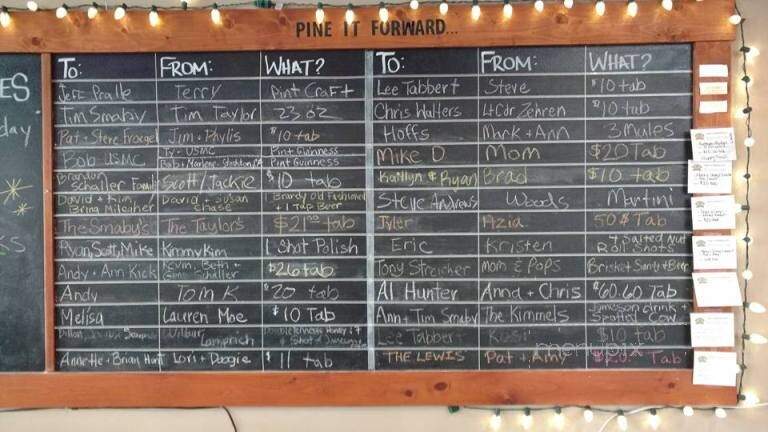 PINE IT FORWARD...
ES
day
KS
TO: FROM: WHAT?
Jeff Pralle Terry Pint Craft
Tim Smaby Tim Taylor 23 oz
Pat + Steve Jim + Phylis $10 tab
Bob USMC USMC Pint Guinness
Bob + Marlene Pint Guinness
Brandon Schaller Family Scott/Jackie $10 tab
David + Kim, David + Susan 1 Brandy Old Fashioned
Chase + 1 Tap Beer
The Smaby's The Taylors $21 tab
Ryan, Scott, Mike Kimmy Kim 1 Shot Polish
Andy + Ann Kick Kevin, Beth + Schaller $26 tab
Andy Tom K $20 tab
Melisa Lauren Moe $10 Tab
Wilbur Lamprich
Annette + Brian Hunt Lori + Doogie $11 tab
TO: FROM: WHAT?
Lee Tabbert Steve $10 tab
Chris Walters Lt Cdr Zehren $10 tab
Hoffs Mark + Ann 3 mules
Mike D Mom $20 Tab
Kaitlyn & Ryan Brad $10 tab
Steve Andrews Woods Martini
Tyler Azia 50$ Tab
Eric Kristen 4 Salted Nut Roll Shots
Tony Streicher Mom & Pops Brisket Sandy + Beer
Al Hunter Anna + Chris $60.60 Tab
Ann + Tim Smaby The Kimmels Jameson drink +
Spotted Cow
Lee Tabbert $10 tab
THE LEWIS Pat + Amy $20 Tab!
menupix